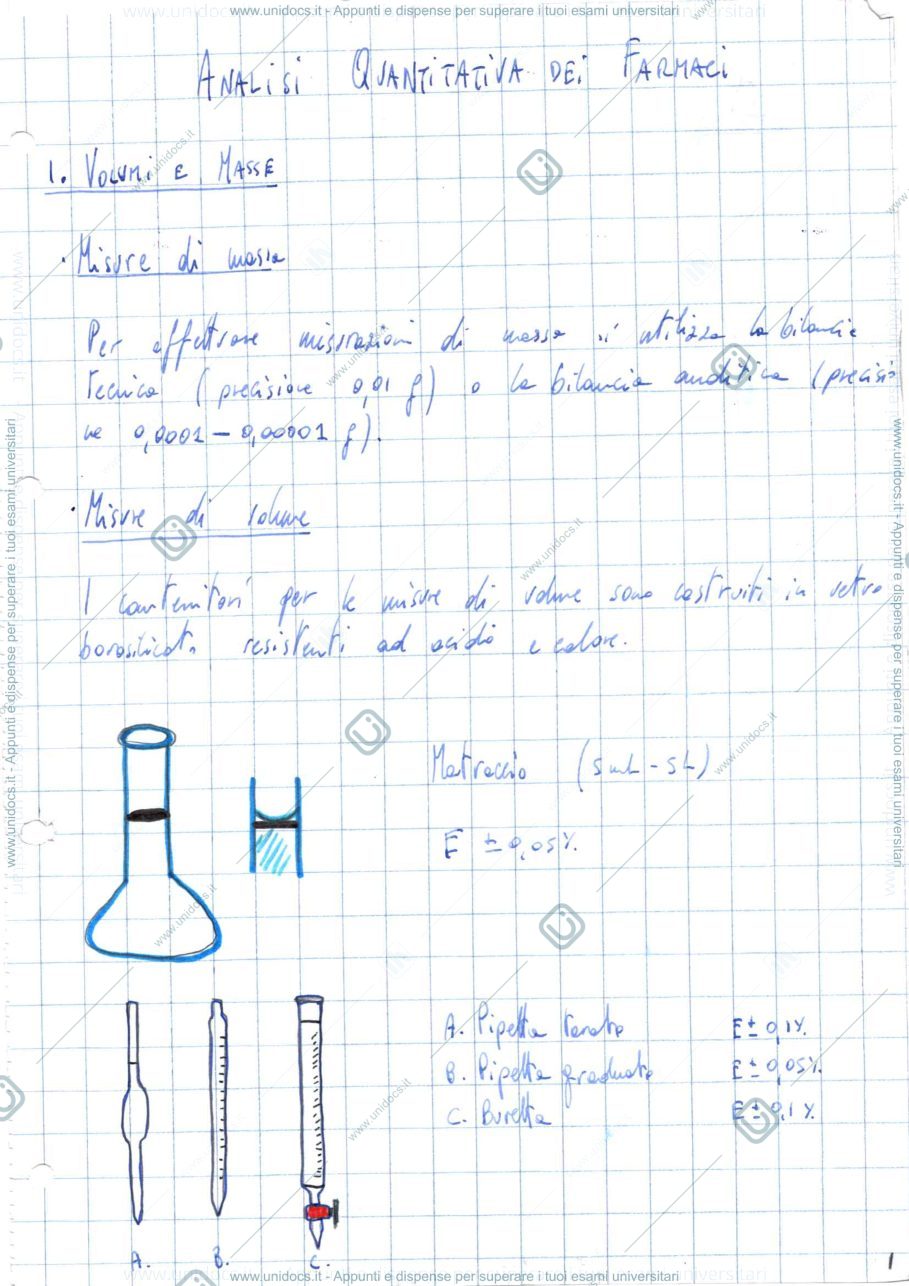 www.unidocs.it - Appunti e dispense per superare i tuoi esami universitari
ANALISI QUANTITATIVA DEI FARMACI
1. VOLUMI E MASSE
· Misure di massa
Per effettuare misurazioni di massa si utilizza la bilancia
tecnica (precisione 0,01 g) o la bilancia analitica (precisio
ne 0,0001 - 0,00001 g).
· Misure di volume
I contenitori per le misure di volume sono costruiti in vetro
borosilicato resistenti ad acido e calore.
Matraccio (5 mL - 5L)
E ± 0,05%.
A. Pipetta tarata E ± 0,1%.
B. Pipetta graduata E ± 0,05%.
C. Buretta E ± 0,1%.
A. B. C.
1
www.unidocs.it - Appunti e dispense per superare i tuoi esami universitari
www.unidocs.it - Appunti e dispense per superare i tuoi esami universitari
www.unidocs.it - Appunti e dispense per superare i tuoi esami universitari
www.unidocs.it
www.unidocs.it
www.unidocs.it
www.unidocs.it
www.unidocs.it
www.unidocs.it